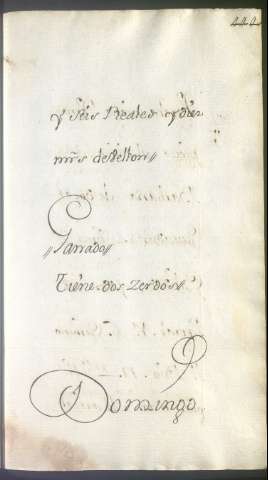 y seis Reales y diez
mrs de vellon //
// Ganado //
Tiene dos zerdos //
Domingo